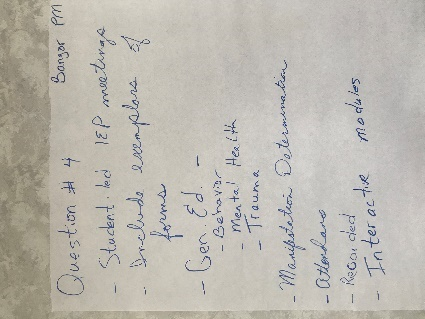 Bangor PM
Question # 4
- Student led IEP meetings
- Include exemplars of
forms
- Gen. Ed. -
- Behavior
- Mental Health
- Trauma
- Manifestation Determination
- Attendance
- Recorded
- Interactive modules